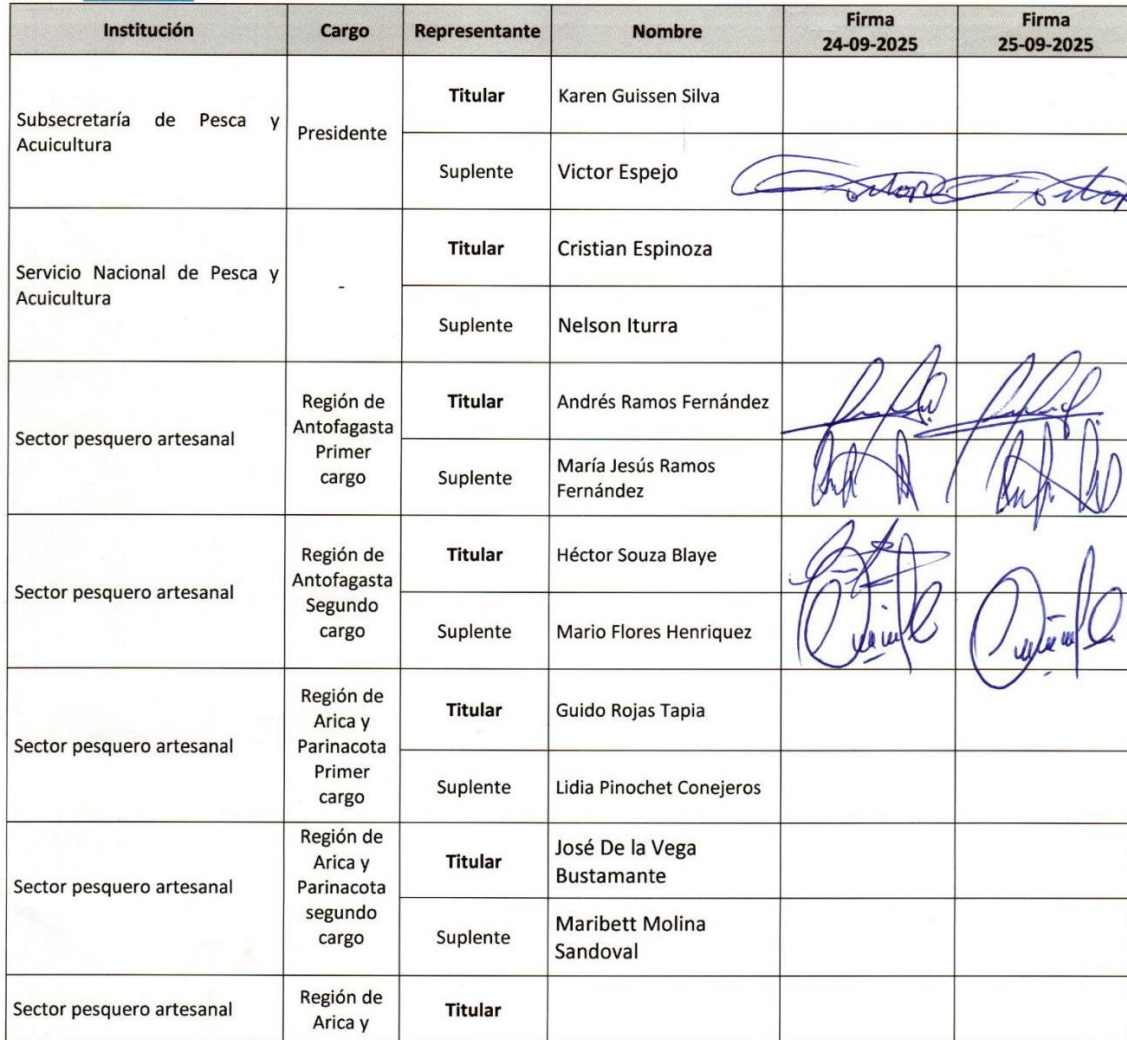 Institución Cargo Representante Nombre Firma 24-09-2025 Firma 25-09-2025
Subsecretaría de Pesca y
Acuicultura
Presidente
Titular Karen Guissen Silva
Suplente Victor Espejo
Servicio Nacional de Pesca y
Acuicultura
-
Titular Cristian Espinoza
Suplente Nelson Iturra
Sector pesquero artesanal
Región de
Antofagasta
Primer
cargo
Titular Andrés Ramos Fernández
Suplente María Jesús Ramos
Fernández
Sector pesquero artesanal
Región de
Antofagasta
Segundo
cargo
Titular Héctor Souza Blaye
Suplente Mario Flores Henriquez
Sector pesquero artesanal
Región de
Arica y
Parinacota
Primer
cargo
Titular Guido Rojas Tapia
Suplente Lidia Pinochet Conejeros
Sector pesquero artesanal
Región de
Arica y
Parinacota
segundo
cargo
Titular José De la Vega
Bustamante
Suplente Maribett Molina
Sandoval
Sector pesquero artesanal
Región de
Arica y
Titular